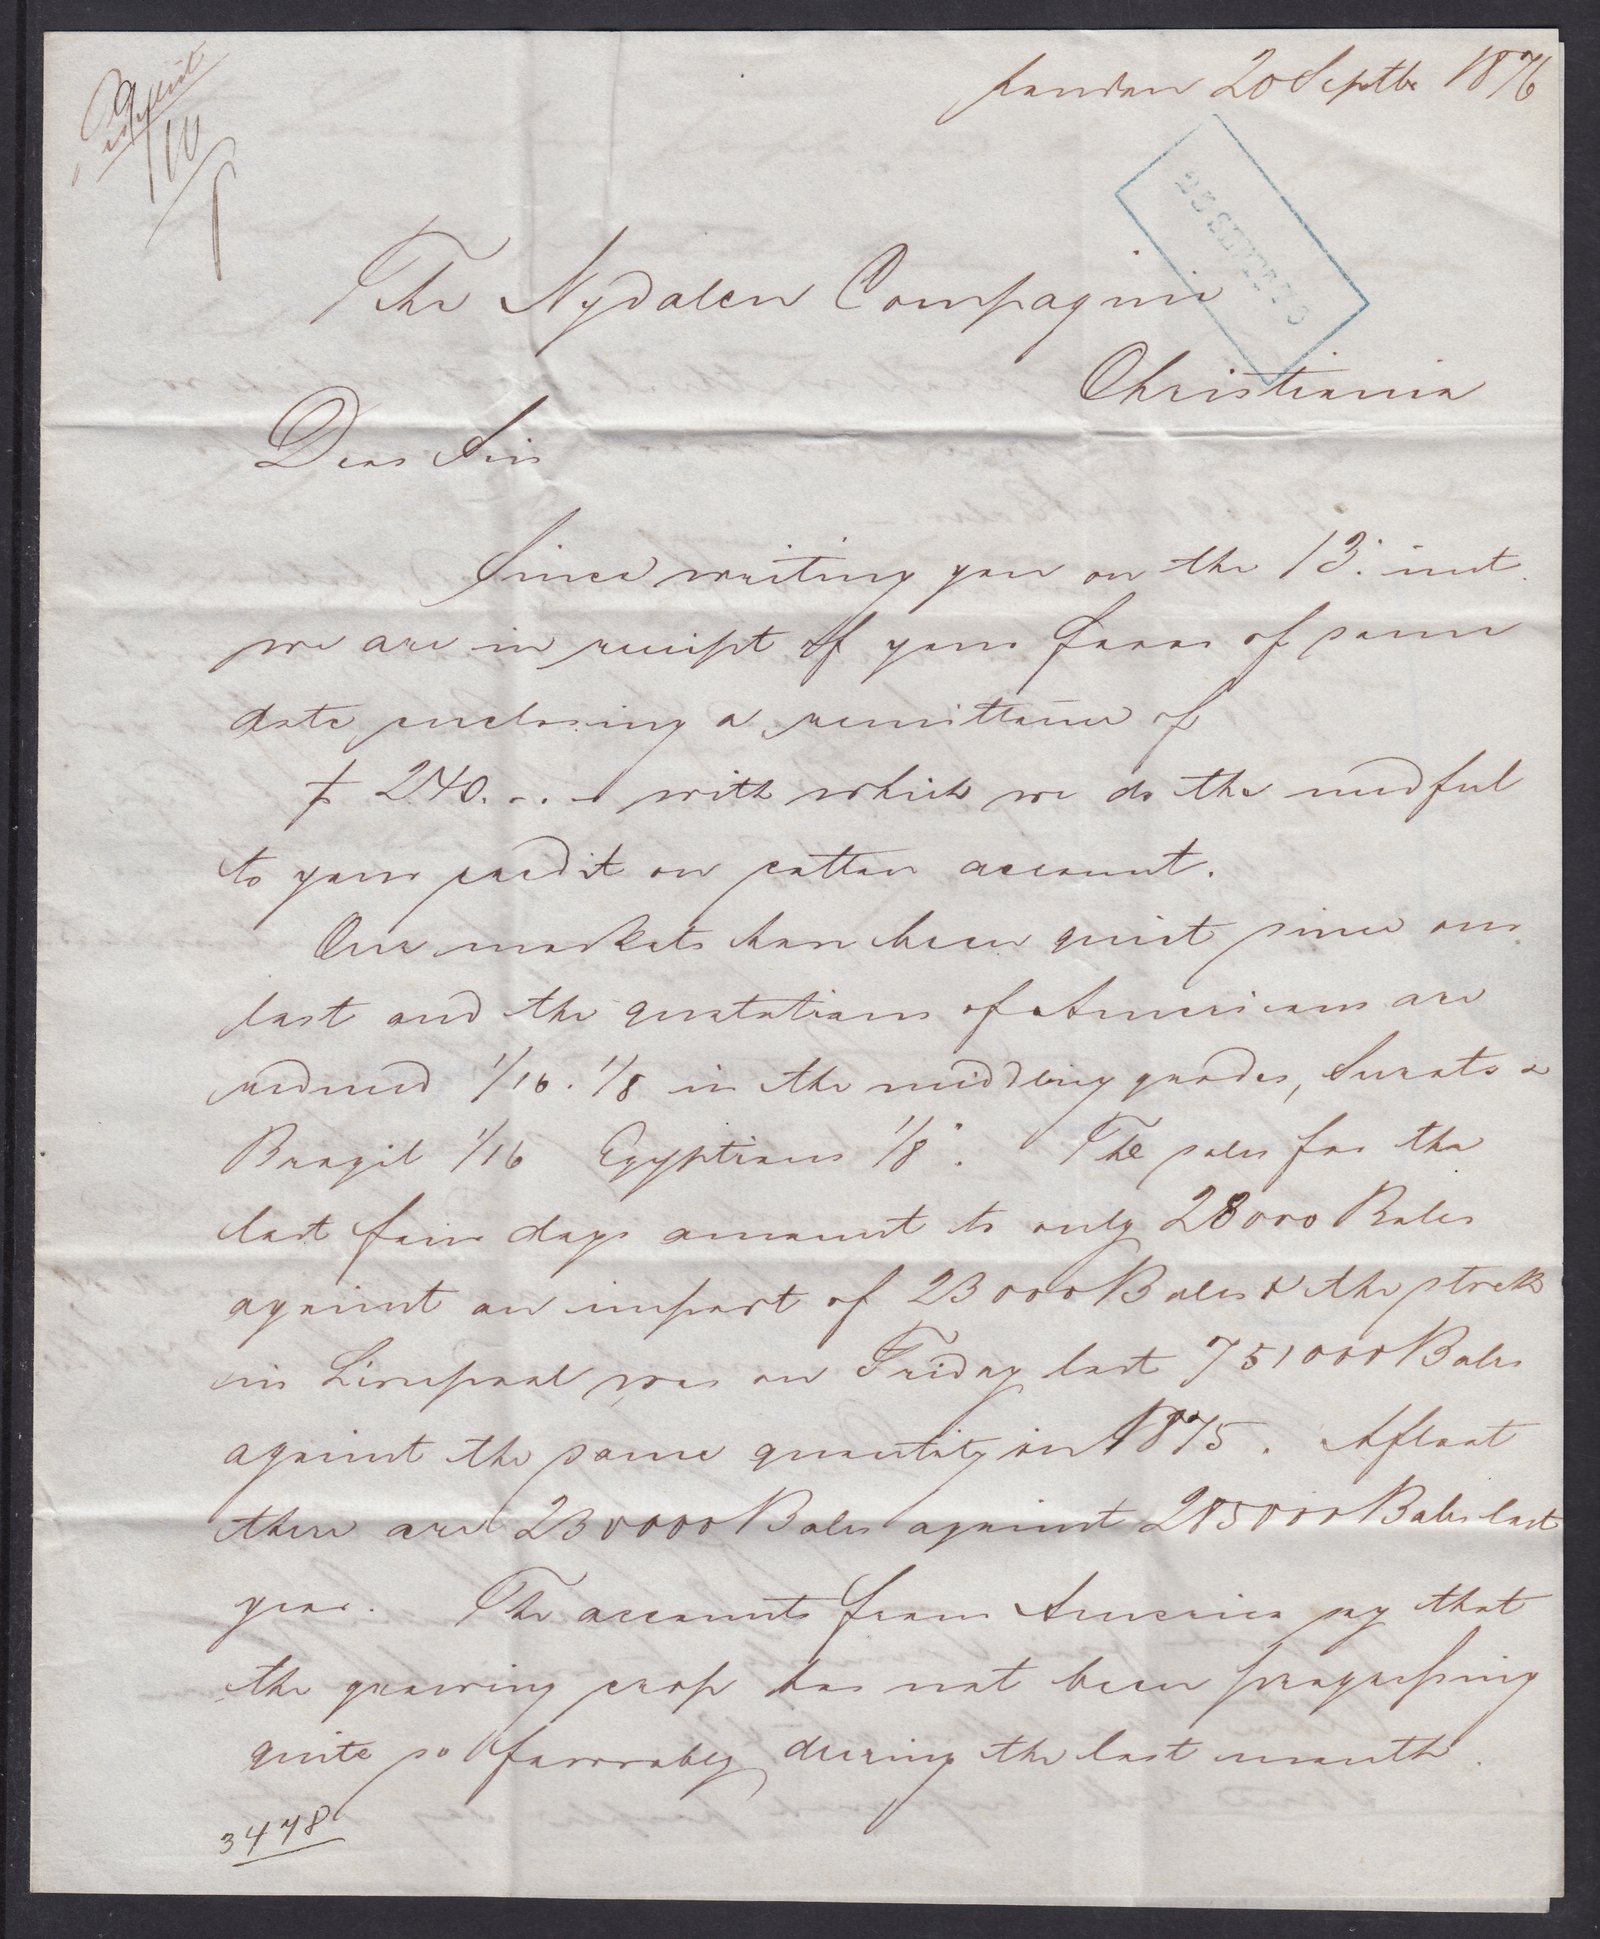 London 20 Septbr 1876
The Nydalen Compagnie
Christiania
Dear Sir
Since writing you on the 13. inst.
we are in receipt of your favor of same
date enclosing a remittance of
£ 240. -. - with which we do the needful
to your credit on cotton account.
Our markets have been quiet since our
last and the quotations of Americans are
reduced 1/16. 1/8 in the middling grades, Surats &
Brazil 1/16 Egyptians 1/8". The sales for the
last four days amount to only 28000 Bales
against an import of 23000 Bales & the stock
in Liverpool was on Friday last 751000 Bales
against the same quantity in 1875. Afloat
there are 230000 Bales against 285000 Bales last
year. The accounts from America say that
the growing crop has not been progressing
quite so favorably during the last month.
3478